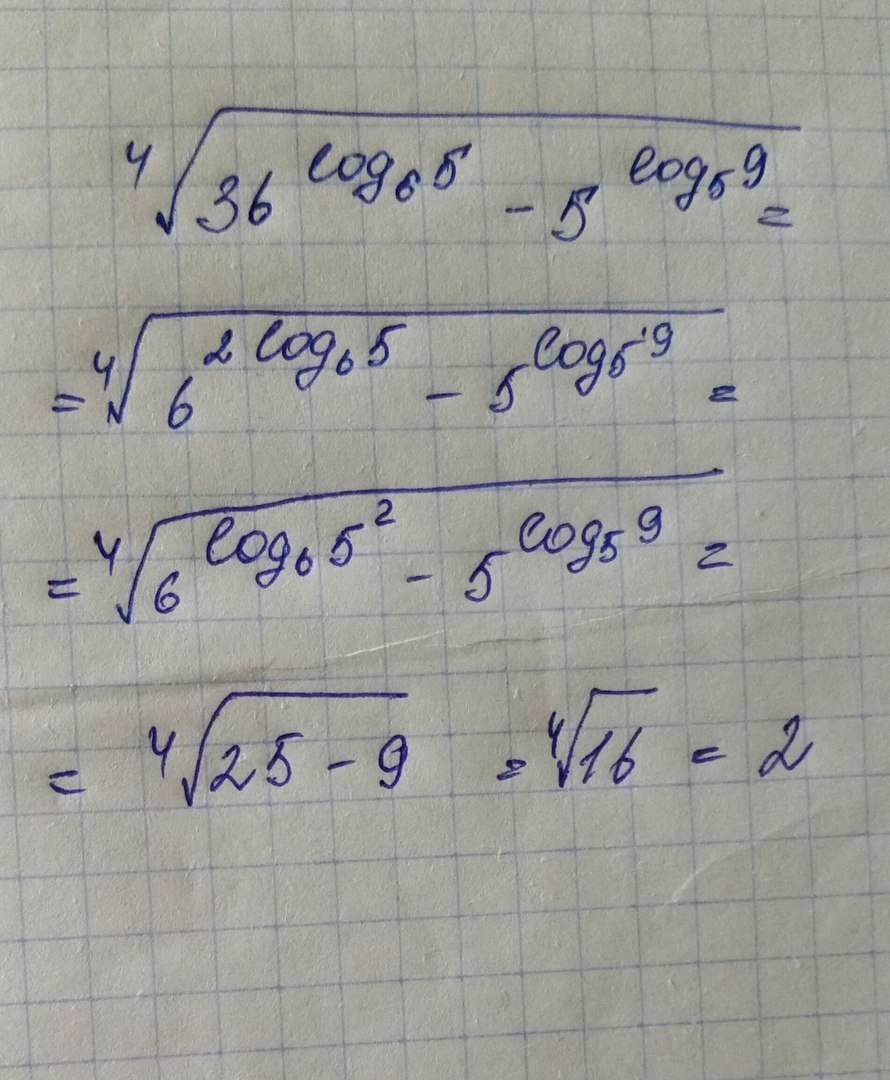 ⁴√(36^(log₆5) - 5^(log₅9)) =
= ⁴√(6^(2log₆5) - 5^(log₅9)) =
= ⁴√(6^(log₆5²) - 5^(log₅9)) =
= ⁴√(25 - 9) = ⁴√16 = 2